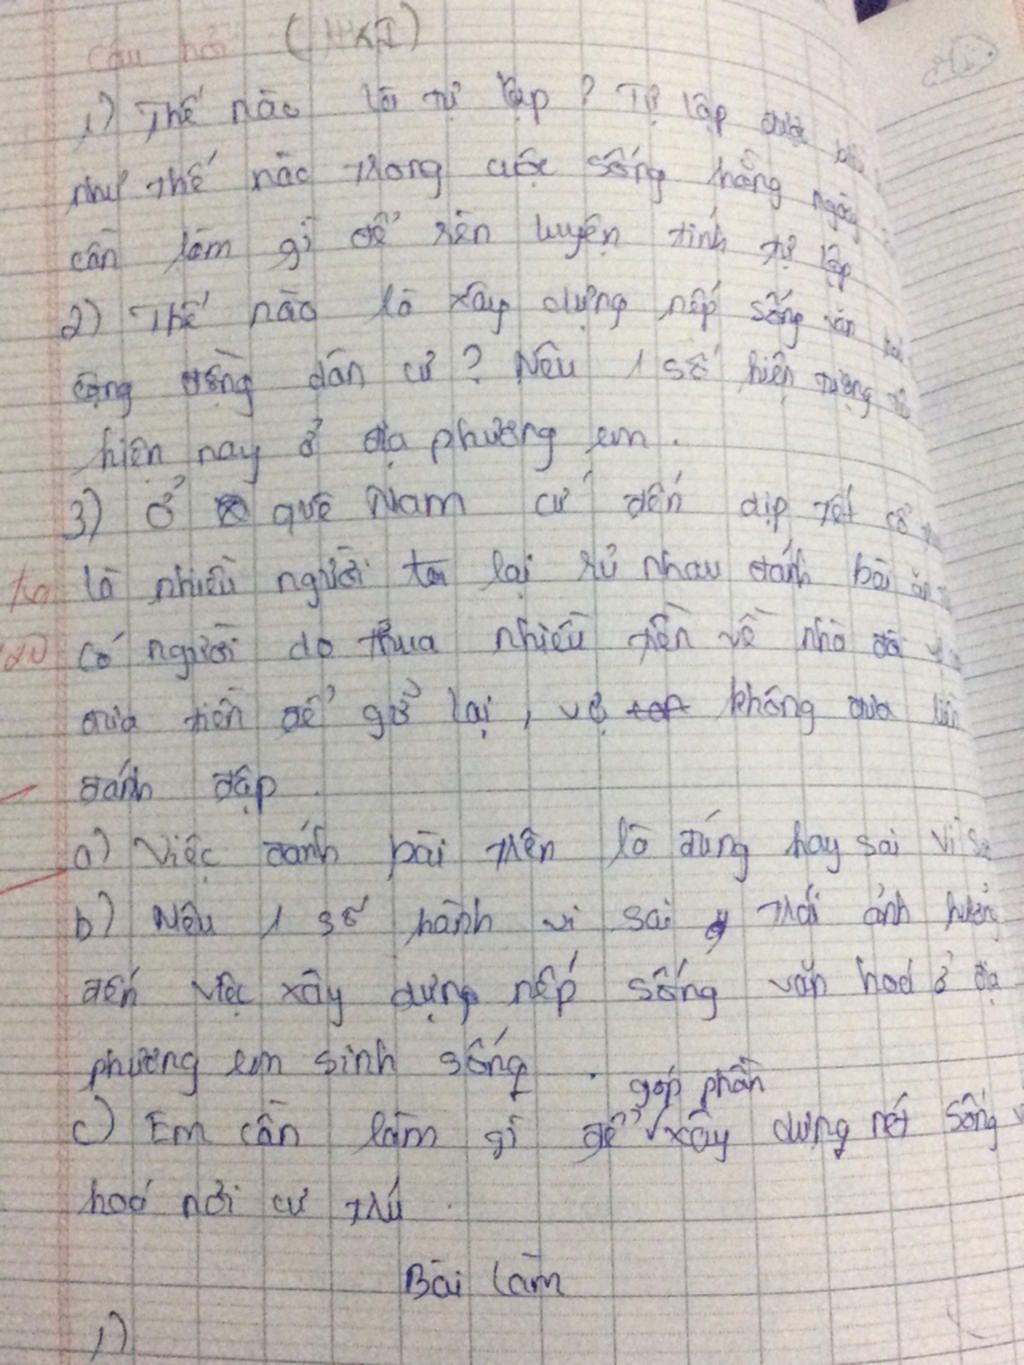 Câu hỏi (HKI)
1) Thế nào là tự lập ? Tự lập được
như thế nào trong cuộc sống hằng ngày
cần làm gì để rèn luyện tính tự lập
2) Thế nào là xây dựng nếp sống văn
cộng đồng dân cư ? Nêu 1 số hiện tượng
hiện nay ở địa phương em .
3) Ở quê Nam cứ đến dịp tết cổ
là nhiều người ta lại rủ nhau đánh bài ăn
có người do thua nhiều tiền về nhà đòi
đưa tiền để gỡ lại , vợ không đưa liền
đánh đập .
a) Việc đánh bài trên là đúng hay sai vì sao
b) Nêu 1 số hành vi sai trái ảnh hưởng
đến việc xây dựng nếp sống văn hoá ở địa
phương em sinh sống .
c) Em cần làm gì để góp phần xây dựng nét sống
hoá nơi cư trú .
Bài làm
1)